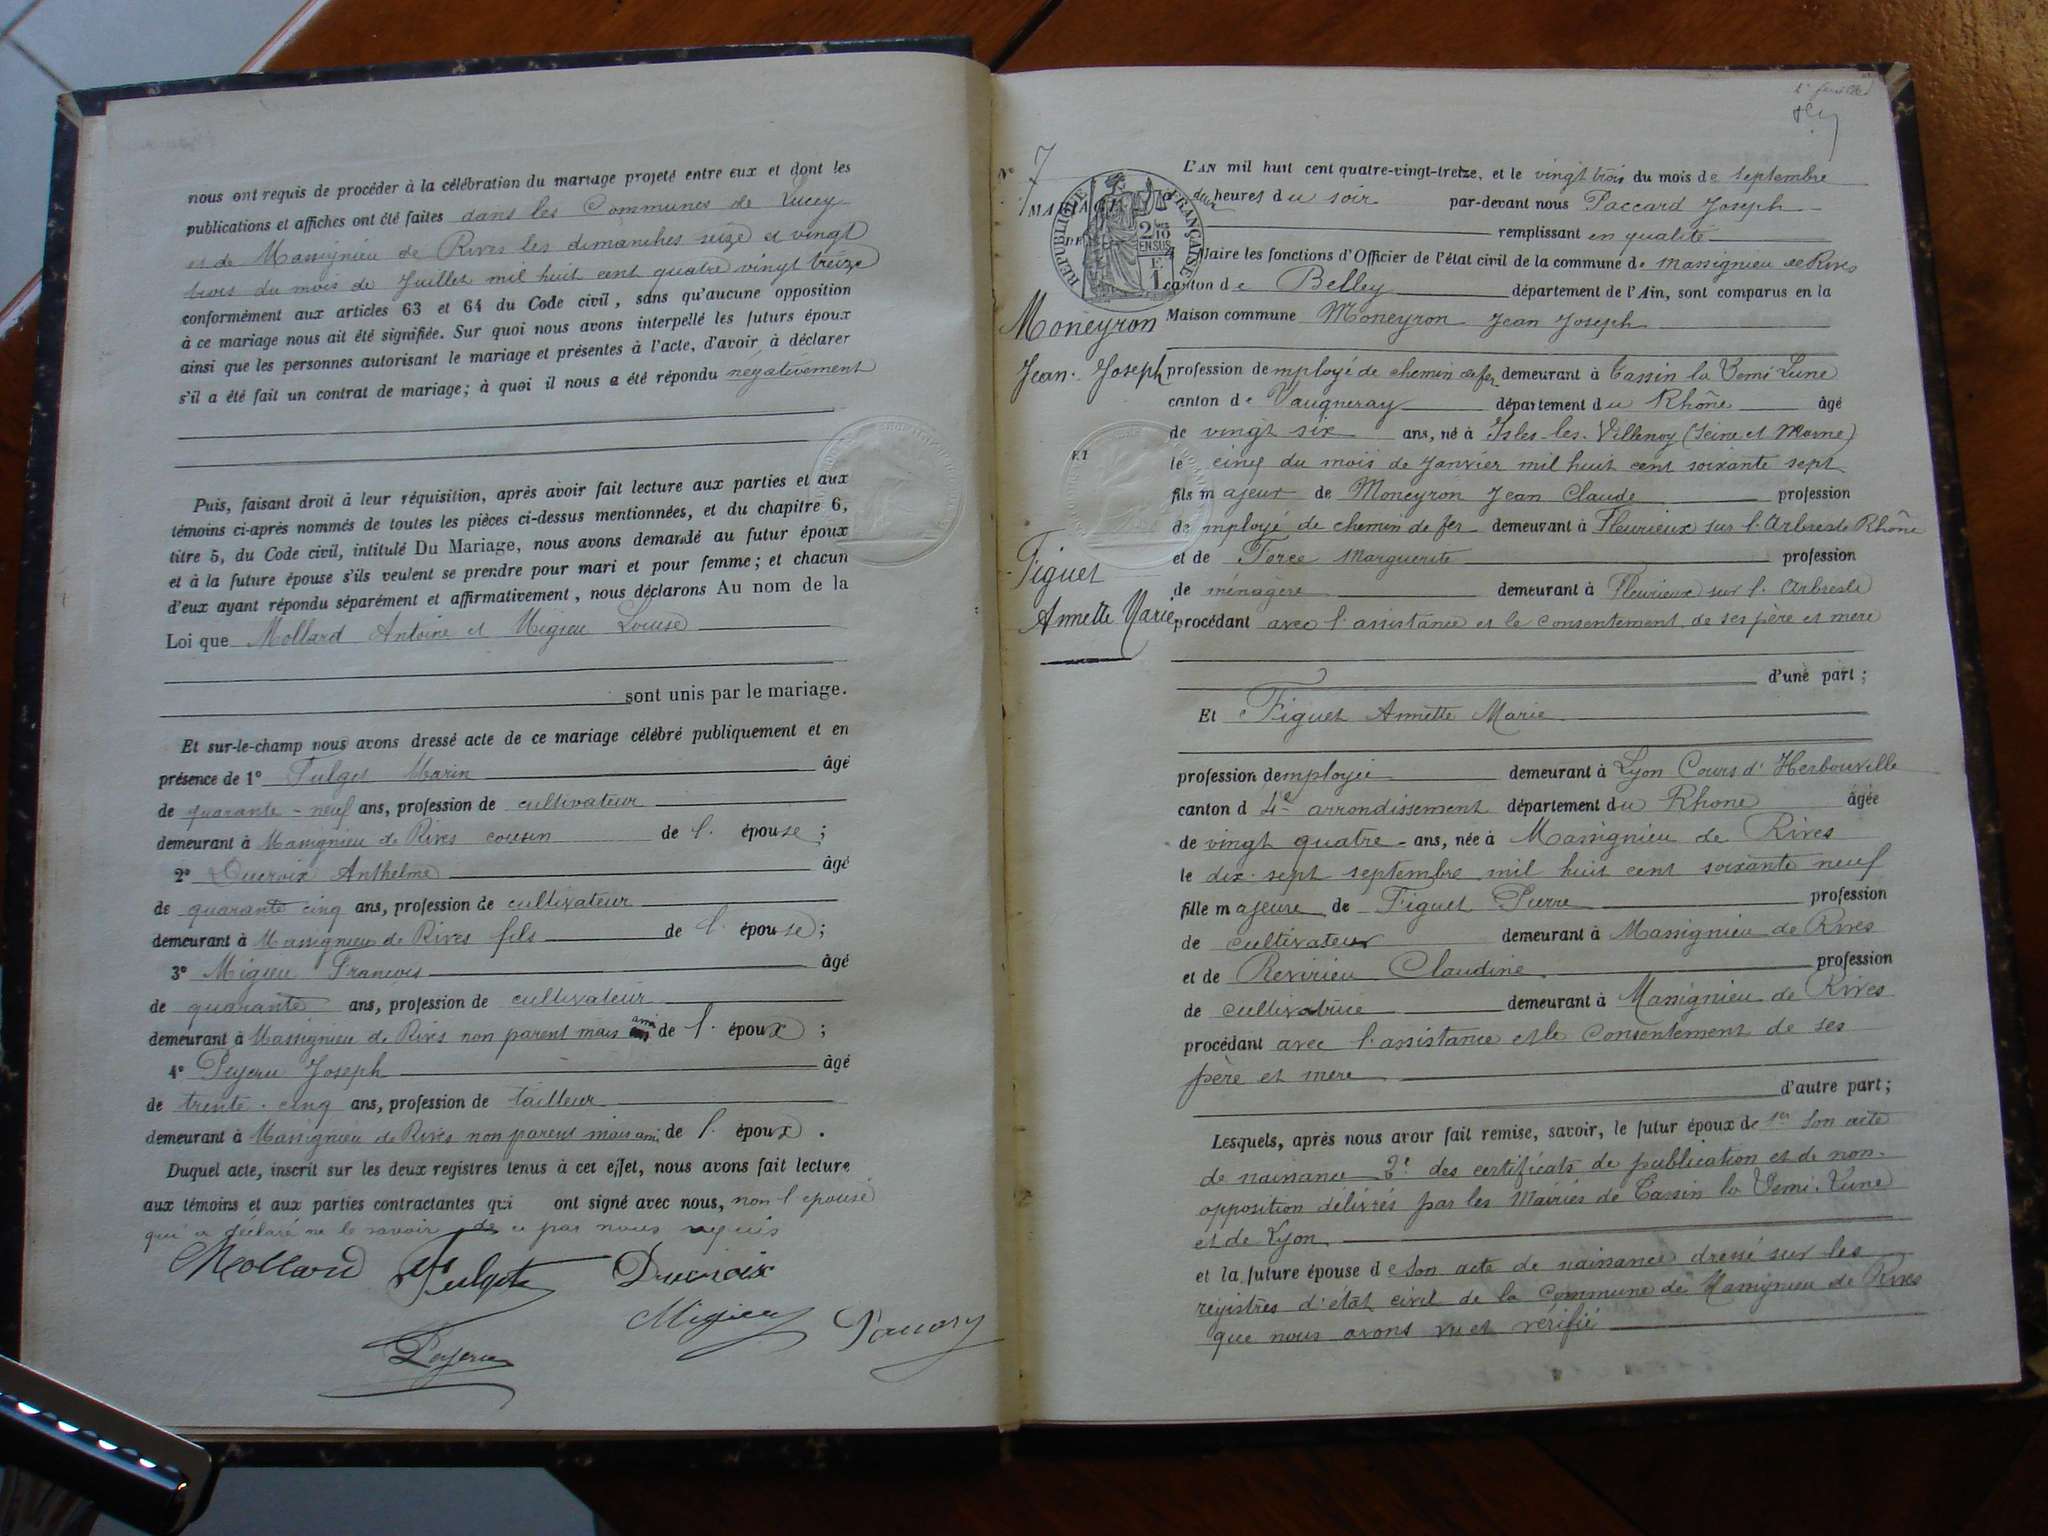 nous ont requis de procéder à la célébration du mariage projeté entre eux et dont les
publications et affiches ont été faites dans les Communes de Lucey
et de Massignieu de Rives les dimanches seize et vingt
trois du mois de Juillet mil huit cent quatre vingt treize
conformément aux articles 63 et 64 du Code civil, sans qu'aucune opposition
à ce mariage nous ait été signifiée. Sur quoi nous avons interpellé les futurs époux
ainsi que les personnes autorisant le mariage et présentes à l'acte, d'avoir à déclarer
s'il a été fait un contrat de mariage; à quoi il nous a été répondu négativement
Puis, faisant droit à leur réquisition, après avoir fait lecture aux parties et aux
témoins ci-après nommés de toutes les pièces ci-dessus mentionnées, et du chapitre 6,
titre 5, du Code civil, intitulé Du Mariage, nous avons demandé au futur époux
et à la future épouse s'ils veulent se prendre pour mari et pour femme; et chacun
d'eux ayant répondu séparément et affirmativement, nous déclarons Au nom de la
Loi que Mollard Antoine et Migieu Louise
sont unis par le mariage.
Et sur-le-champ nous avons dressé acte de ce mariage célébré publiquement et en
présence de 1° Fulget Marin âgé
de quarante-neuf ans, profession de cultivateur
demeurant à Massignieu de Rives cousin de l'épouse;
2° Ducroix Anthelme âgé
de quarante cinq ans, profession de cultivateur
demeurant à Massignieu de Rives fils de l'épouse;
3° Migieu François âgé
de quarante ans, profession de cultivateur
demeurant à Massignieu de Rives non parent mais ami de l'époux;
4° Peyeru Joseph âgé
de trente-cinq ans, profession de tailleur
demeurant à Massignieu de Rives non parent mais ami de l'époux.
Duquel acte, inscrit sur les deux registres tenus à cet effet, nous avons fait lecture
aux témoins et aux parties contractantes qui ont signé avec nous, non l'épouse
qui a déclaré ne le savoir de ce par nous requis
Mollard Fulget Ducroix
Migieu Paccard
Peyeru
1e feuillet
N° 7
MARIAGE
DE
RÉPUBLIQUE FRANÇAISE
2/10 EN SUS
F. 1
Moneyron
Jean-Joseph
ET
Figuet
Annette Marie
L'AN mil huit cent quatre-vingt-treize, et le vingt trois du mois de Septembre
à deux heures du soir par-devant nous Paccard Joseph
remplissant en qualité
Maire les fonctions d'Officier de l'état civil de la commune de Massignieu de Rives
canton de Belley département de l'Ain, sont comparus en la
Maison commune Moneyron Jean Joseph
profession d'employé de chemin de fer demeurant à Tassin la Demi Lune
canton de Vaugneray département du Rhône âgé
de vingt six ans, né à Isles-les-Villenoy (Seine et Marne)
le cinq du mois de Janvier mil huit cent soixante sept
fils majeur de Moneyron Jean Claude profession
d'employé de chemin de fer demeurant à Fleurieux sur l'Arbresle Rhône
et de Force Marguerite profession
de ménagère demeurant à Fleurieux sur l'Arbresle
procédant avec l'assistance et le consentement de ses père et mère
d'une part;
Et Figuet Annette Marie
profession d'employée demeurant à Lyon Cours d'Herbouville
canton d 4e arrondissement département du Rhône âgée
de vingt quatre ans, née à Massignieu de Rives
le dix-sept septembre mil huit cent soixante neuf
fille majeure de Figuet Pierre profession
de cultivateur demeurant à Massignieu de Rives
et de Revirieu Claudine profession
de cultivatrice demeurant à Massignieu de Rives
procédant avec l'assistance et le consentement de ses
père et mère
d'autre part;
Lesquels, après nous avoir fait remise, savoir, le futur époux de 1er Son acte
de naissance 2e des certificats de publication et de non-
opposition délivrés par les Mairies de Tassin la Demi-Lune
et de Lyon
et la future épouse de son acte de naissance dressé sur les
registres d'état civil de la commune de Massignieu de Rives
que nous avons vu et vérifié